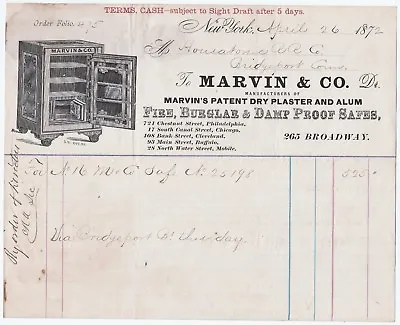 TERMS, CASH—subject to Sight Draft after 5 days.
Order Folio, 475
New-York, April 26 1872
M Housatonic R R Co
Bridgeport Conn
To MARVIN & CO. Dr.
MANUFACTURERS OF
MARVIN'S PATENT DRY PLASTER AND ALUM
FIRE, BURGLAR & DAMP PROOF SAFES,
721 Chestnut Street, Philadelphia,
17 South Canal Street, Chicago,
108 Bank Street, Cleveland,
93 Main Street, Buffalo,
28 North Water Street, Mobile.
265 BROADWAY.
MARVIN & CO.
By order of
For No 16 M & Co Safe No 25198 525
Via Bridgeport Str Thursday